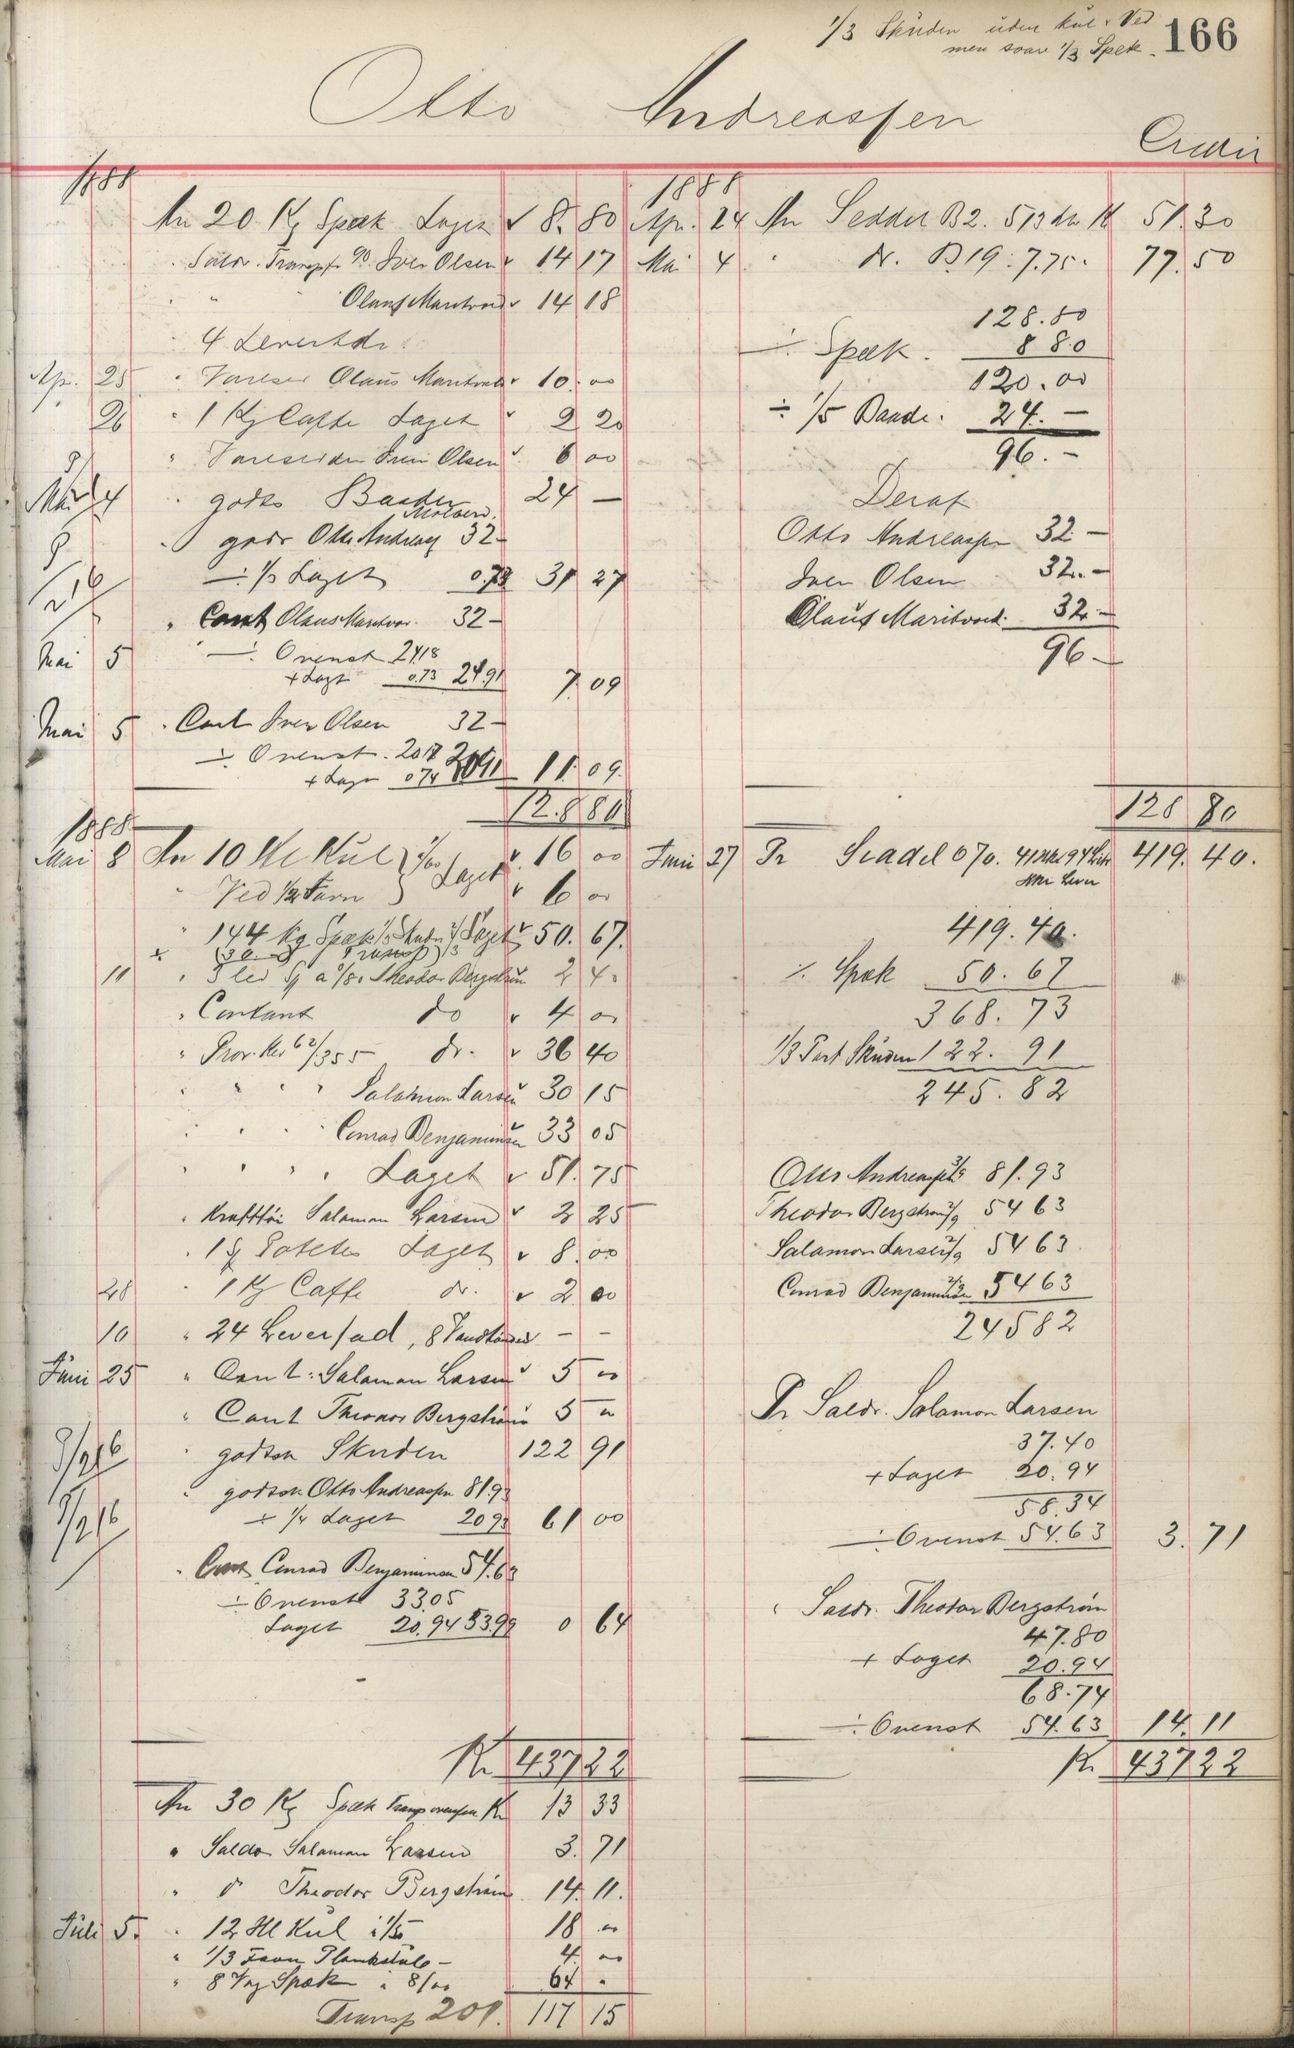 1/3 Skuden uden kul & Ved
men svar 1/3 Spek.
166
Otto Andreassen
Credit
1888
An 20 Kg Spæk Laget 8. 80
Iver Olsen 14 17
" Olaus Maritvold 14 18
4 Levertdr.
Apr. 25 " Olaus Maritvold 10.00
26 " 1 Kg Caffe Laget 2 20
" Iver Olsen 6 00
Mai 4 " godts Baaden 24 —
" godts Otto Andreas 32 –
÷ 1/3 Laget 0.73 31 27
Mai 5 " Cont Olaus Maritvol. 32 –
÷ Ovenst 24.18
+ Lagt 0.73 24.91 7.09
Mai 5 " Cont Iver Olsen 32 –
÷ Ovenst. 20.17
+ Lagt 074 2091 11.09.
128.80
1888
Apr. 24 An Seddel B2. 513 51.30
Mai 4 " do. B19: 7.75. 77.50
128.80
÷ Spæk. 8 80
120.00
÷ 1/5 Baade. 24. —
96. –
Deraf
Otto Andreassen 32 –
Iver Olsen 32. –
Olaus Maritvold. 32 –
96 –
128 80
1888
Mai 8 An 10 Hl Kul Laget 16 00
" Ved 1/2 Favn 6 00
" 144 Kg Spæk 1/3 Skuden Laget 50.67.
11 " Theodor Bergstrøm 2 40
" Contant do 4 00
" Prov. 62/355 do. 36 40
" " " " Salamon Larsen 30 15
" " " " Conrad Benjaminsen 33 05
" " " " Laget 51.75
" Salamon Larsen 2 25
" 1 Poteter Laget 8.00
28 " 1 Kg Caffe do. 2 00
10 " 24 Leverfad, 8 Vandtønder – –
Juni 25 " Cont: Salamon Larsen 5 00
" Cont Theodor Bergstrøm 5 "
" godtsk Skuden 122 91
" godtsk. Otto Andreassen 81.93
÷ 1/4 Laget 20 93 61 00
" Cont Conrad Benjaminsen 54.63
÷ Ovenst 33.05
Laget 20.94 53.99 0 64
Kr 437 22
Juni 27 Pr Seadel 419. 40.
419.40.
% Spæk 50.67
368.73
1/3 Part Skuden 122.91
245.82
Otto Andreassen 3/9 81.93
Theodor Bergstrøm 2/9 54 63
Salamon Larsen 2/9 54 63
Conrad Benjaminsen 2/9 54 63
245 82
Pr Saldo. Salamon Larsen
37.40
+ Laget 20.94
58.34
÷ Ovenst 54.63 3.71
" Saldo. Theodor Bergstrøm
47.80
+ Laget 20.94
68.74
÷ Ovenst 54.63 14.11
Kr 437 22
An 30 Kg Spæk Transp Kr 13 33
" Saldo Salamon Larsen 3.71
" do Theodor Bergstrøm 14.11.
Juli 5. " 12 Hl Kul 1/50 18 00
" 1/3 Favn 4.00
" 8 Vog Spæk à 8/00 64 "
Transp 201. 117 15